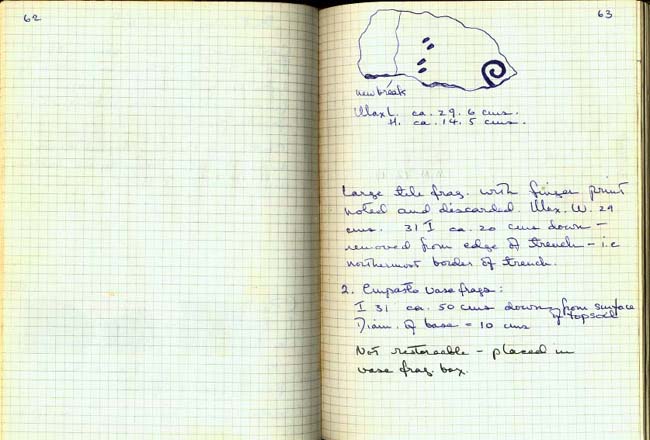 62
63
new break
Max L. ca. 29.6 cms.
H. ca. 14.5 cms.
Large tile frag. with finger print
noted and discarded. Max. W. 29
cms. 31 I ca. 20 cms down –
removed from edge of trench – i.e
northernmost border of trench.
2. Impasto vase frags:
I 31 ca. 50 cms down from surface
of topsoil
Diam. of base = 10 cms
Not restoreable – placed in
vase frag. box.